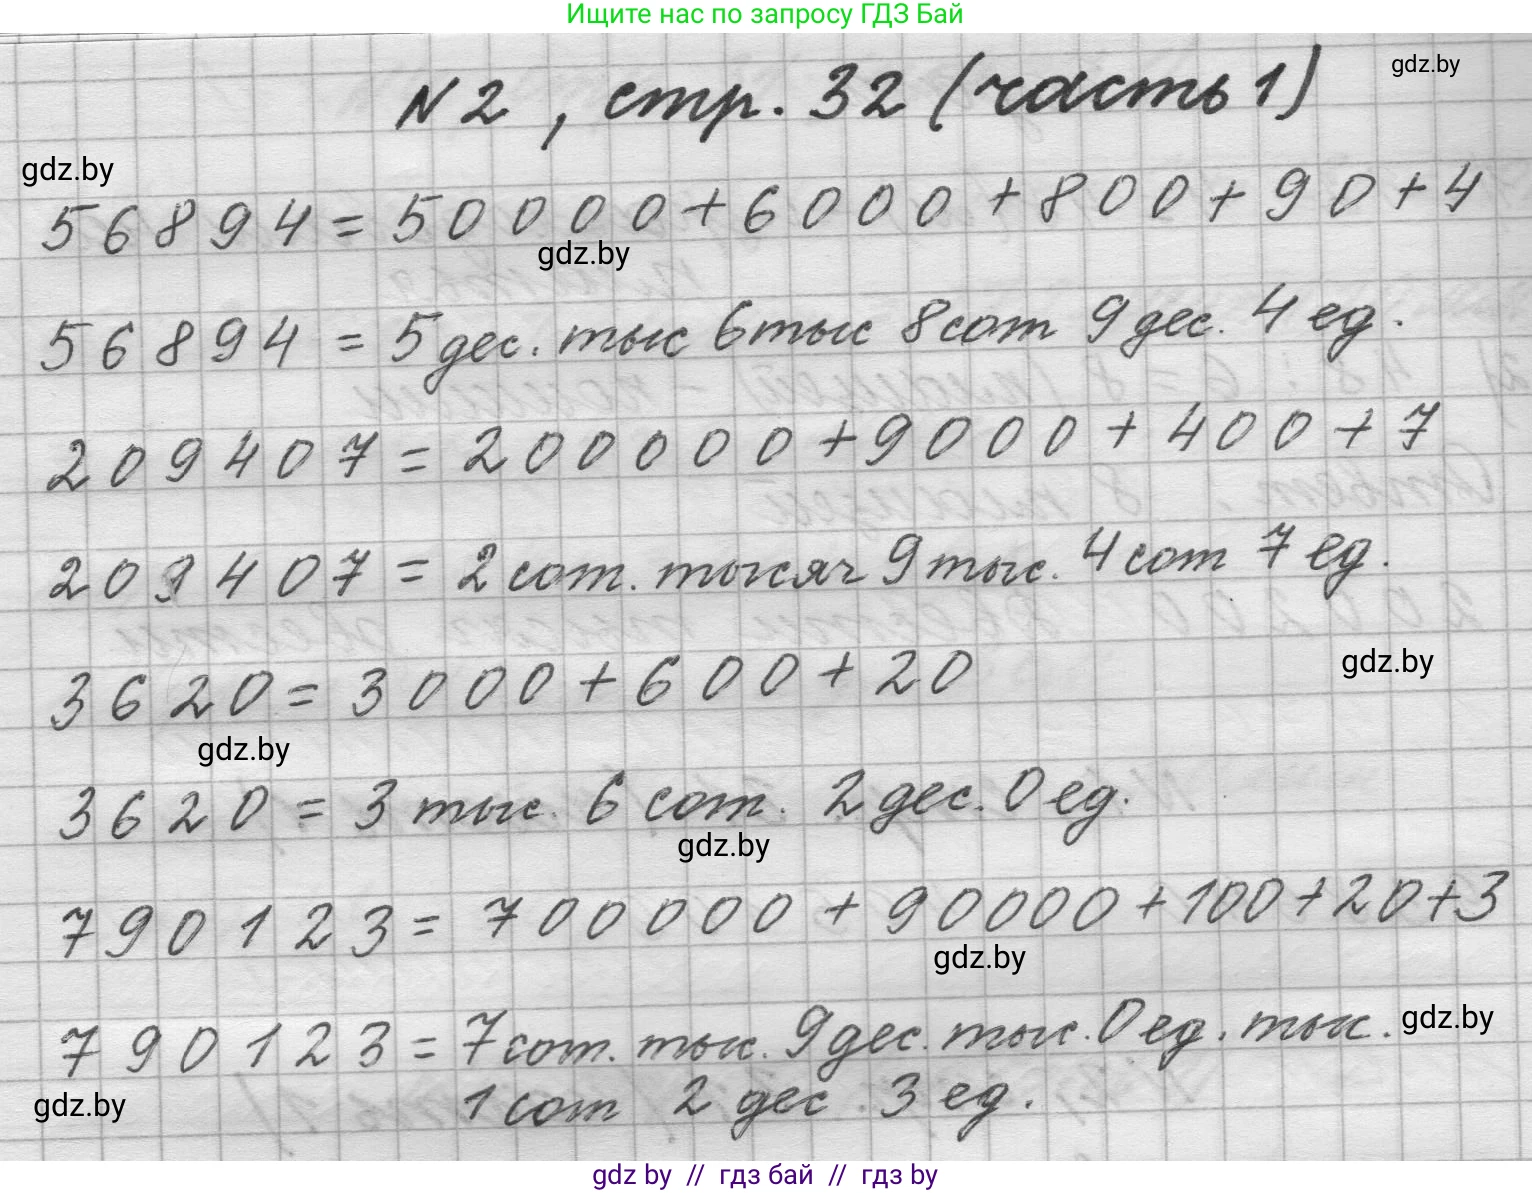 Ищите нас по запросу ГДЗ Бай
gdz.by
N 2 , стр. 32 (часть 1)
gdz.by
56894 = 50000 + 6000 + 800 + 90 + 4
gdz.by
56894 = 5 дес. тыс 6 тыс 8 сот 9 дес. 4 ед.
209407 = 200000 + 9000 + 400 + 7
209407 = 2 сот. тысяч 9 тыс. 4 сот 7 ед.
gdz.by
3620 = 3000 + 600 + 20
gdz.by
3620 = 3 тыс. 6 сот. 2 дес. 0 ед.
gdz.by
790123 = 700000 + 90000 + 100 + 20 + 3
gdz.by
790123 = 7 сот. тыс. 9 дес. тыс. 0 ед. тыс.
gdz.by
1 сот 2 дес 3 ед.
gdz.by
gdz by // гдз бай // гдз by